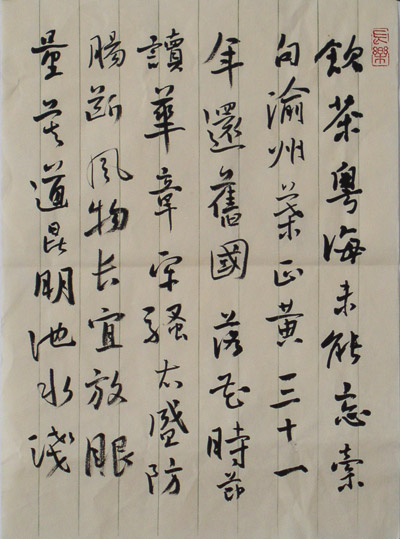 長樂
飲茶粤海未能忘索
句渝州葉正黄三十一
年還舊國落花時節
讀華章牢騷太盛防
腸断風物长宜放眼
量莫道昆明池水淺